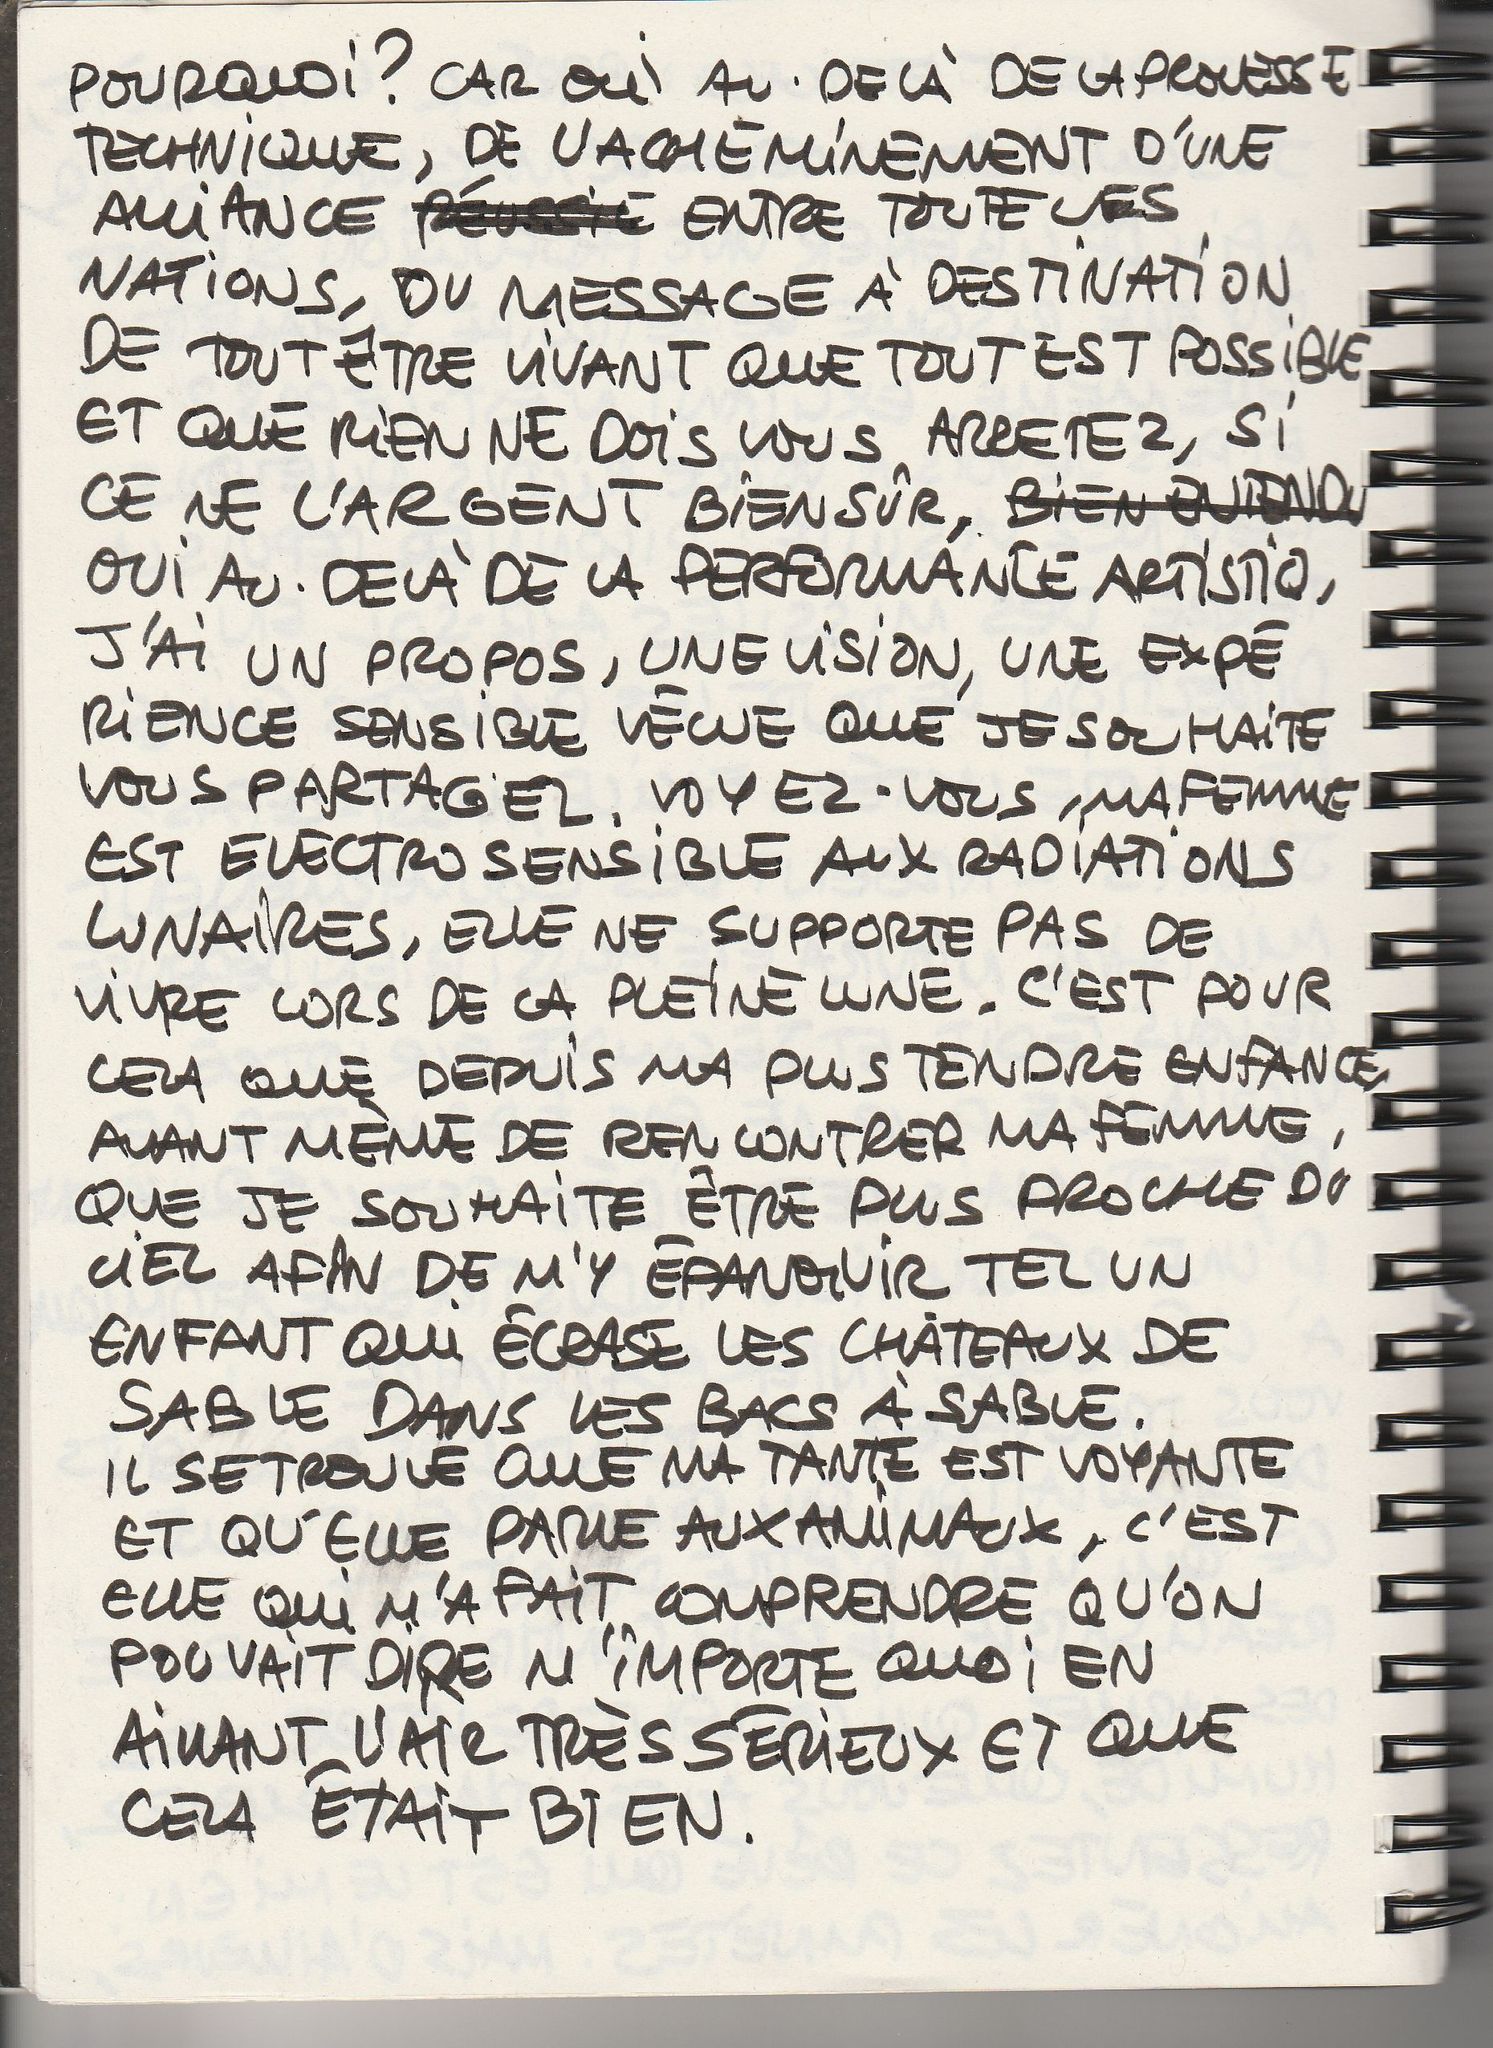 POURQUOI? CAR OUI AU-DELÀ DE LA PROUESSE
TECHNIQUE, DE L'ACHEMINEMENT D'UNE
ALLIANCE RÉUSSIE ENTRE TOUTE LES
NATIONS, DU MESSAGE À DESTINATION
DE TOUT ÊTRE VIVANT QUE TOUT EST POSSIBLE
ET QUE RIEN NE DOIS VOUS ARRETEZ, SI
CE NE L'ARGENT BIEN SÛR, BIEN ENTENDU
OUI AU-DELÀ DE LA PERFORMANCE ARTISTIQ,
J'AI UN PROPOS, UNE VISION, UNE EXPÉ
RIENCE SENSIBLE VÉCUE QUE JE SOUHAITE
VOUS PARTAGEZ. VOYEZ-VOUS, MA FEMME
EST ELECTROSENSIBLE AUX RADIATIONS
LUNAIRES, ELLE NE SUPPORTE PAS DE
VIVRE LORS DE LA PLEINE LUNE. C'EST POUR
CELA QUE DEPUIS MA PLUS TENDRE ENFANCE,
AVANT MÊME DE RENCONTRER MA FEMME,
QUE JE SOUHAITE ÊTRE PLUS PROCHE DU
CIEL AFIN DE M'Y ÉPANOUIR TEL UN
ENFANT QUI ÉCRASE LES CHÂTEAUX DE
SABLE DANS LES BACS À SABLE.
IL SE TROUVE QUE MA TANTE EST VOYANTE
ET QU'ELLE PARLE AUX ANIMAUX, C'EST
ELLE QUI M'A FAIT COMPRENDRE QU'ON
POUVAIT DIRE N'IMPORTE QUOI EN
L'AIR TRÈS SÉRIEUX ET QUE
CELA ÉTAIT BIEN.